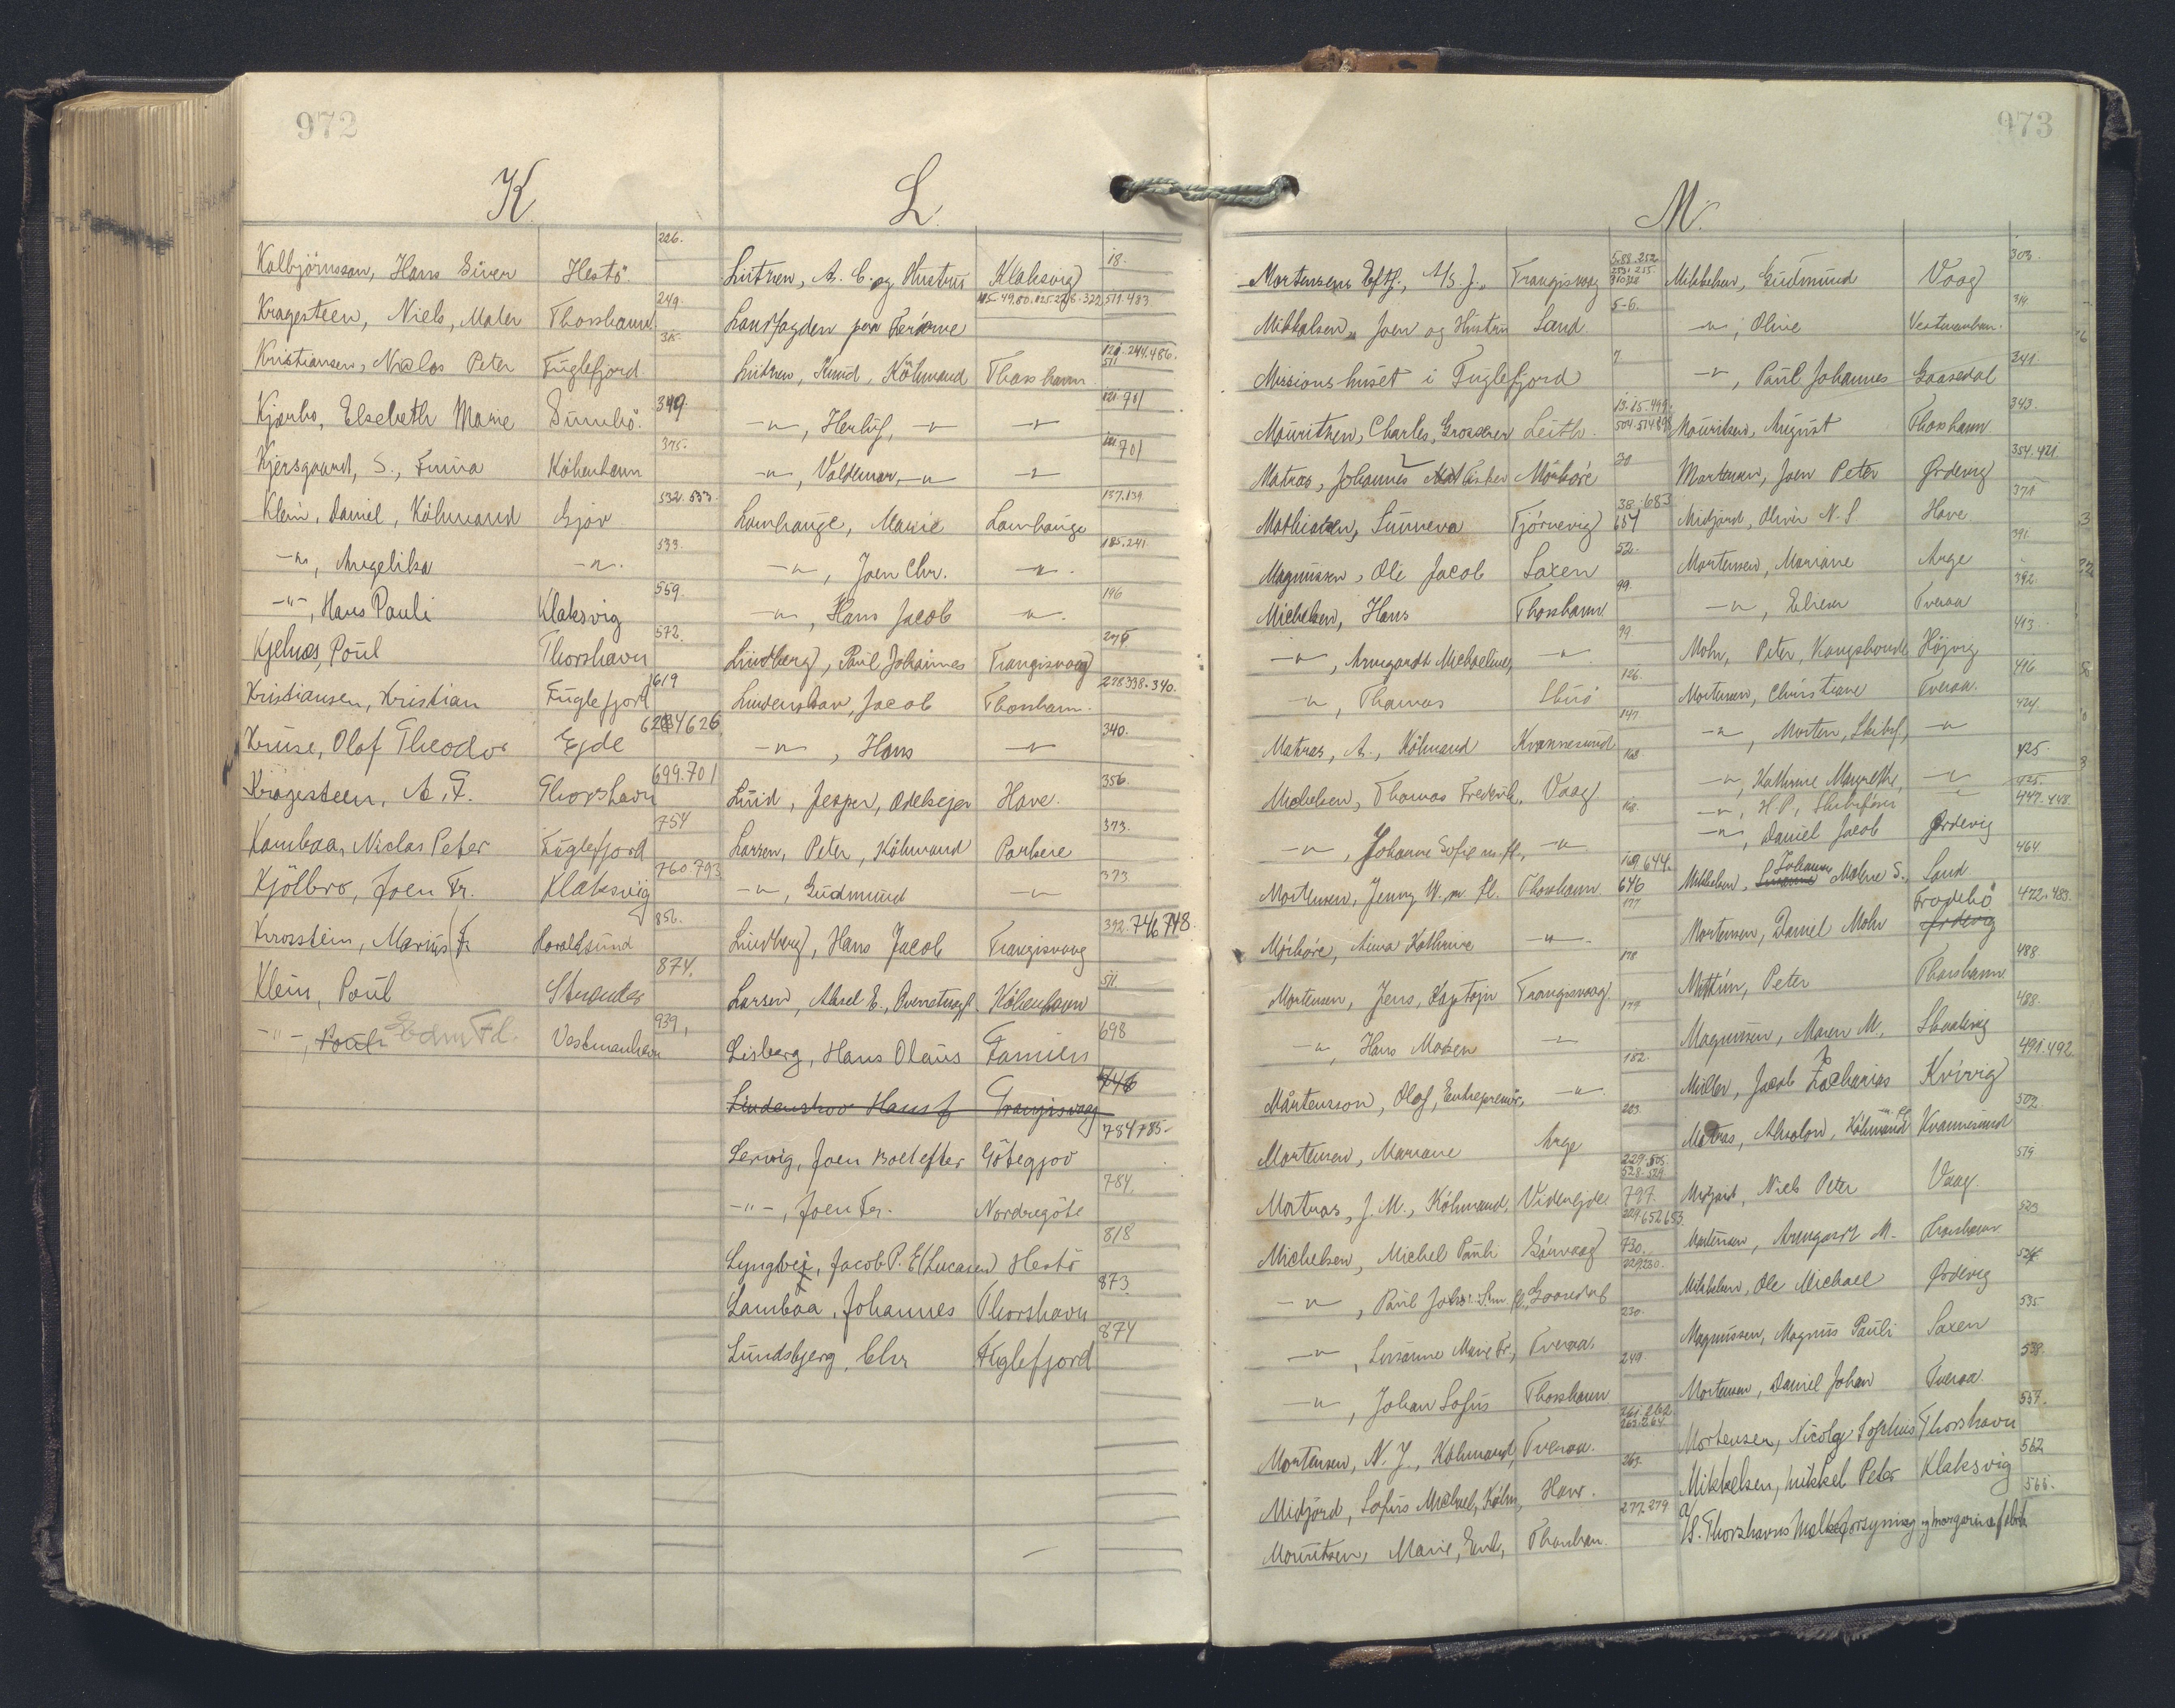 972
K
Kolbjörnsson, Hans Siver Hestö. 226.
Kragesteen, Niels, Maler Thorshavn. 249.
Kristiansen, Niclas Peter Fuglefjord 315.
Kjærbo, Elsebeth Marie Sumbö. 349.
Kjersgaard, S., Firma Köbenhavn 375.
Klein, Daniel, Köbmand Gjov 532.533.
-"-, Angelika -"-. 533.
-"-, Hans Pauli Klaksvig 559.
Kjelnæs, Poul Thorshavn 572.
Kristiansen, Kristian Fuglefjord 619
Kruse, Olof Theodor Ejde 626
Kragesteen, A. F. Thorshavn 699.701
Kambaa, Niclas Peter Fuglefjord 754
Kjölbro, Joen Fr. Klaksvig 760 793
Krosstein, Marius Fr. Haraldsund 856.
Klein, Poul Strender 874.
-"-, Pouli Edm Fd. Vestmanhavn 939,
L.
Lützen, A. C. og Hustru Klaksvig 18.
Landfogden paa Færöerne 519.483.
Lützen, Knud, Köbmand Thorshavn 120.244.486. 511
-"-, Herluf, -"- -"- 121 701
-"-, Valdemar, -"- -"- 701
Lambhauge, Marie Lambhauge 137.139
-"-, Joen Chr. -"-. 185.241.
-"-, Hans Jacob -"-. 196
Lindberg, Poul Johannes Trangisvaag
Lindenskov, Jacob Thorshavn. 278 338.340.
-"-, Hans -"- 340.
Luid, Jesper, Odelsejer Hove. 356.
Larsen, Peter, Köbmand Porkere 373.
-"-, Gudmund -"- 373
Lindberg, Hans Jacob Trangisvaag 392.746 748.
Larsen, Aksel E., Köbenhavn 511
Lisberg, Hans Olaus Famien 698
Lindenskov Hans J Trangisvaag 746
Lervig, Joen Boet efter Götegjov 784 785-
-"-, Joen Fr. Nordregöte 784.
Lyngvej, Jacob P. E (Lucasen) Hestö 818
Lamboa, Johannes Thorshavn 873.
Lundsbjerg, Chr Fuglefjord 874
973
M.
Mortensens Eftf., A/S. J., Trangisvaag 5.88.252. 253.255.
Mikkelsen, Joen og Hustru Sand. 5-6.
Missionshuset i Fuglefjord 7.
Mouritzen, Charles, Grosserer Leith. 13.15.499. 504.514
Matras, Johannes Fisker Mörköre 30
Mathiasen, Sunneva Tjörnevig 38.683 654
Magnussen, Ole Jacob Saxen 52.
Michelsen, Hans Thorshavn 99.
-"-, Armgardt -"- 99.
-"-, Thomas 126.
Matras, A., Köbmand Kvannesund 147.
Michelsen, Thomas Frederik, Vaag 168.
-"-, Johanne Sofie m. fl., -"- 168.
Mortensen, Jenny W. m. fl. Thorshavn 169 644. 646
Mörköre, Anna Kathrine -"-. 177
Mortensen, Jens, Kaptajn Trangisvaag. 178
-"-, Hans -"- 179
Mårtensson, Olof, Entreprenör, -"-. 182.
Mortensen, Mariane Arge 203.
Matras, J. M., Köbmand, Videreejde 229.505. 528.529. 797.
Michelsen, Michel Pauli Sörvaag 229.652 653. 730.
-"-, Poul Gaasedal 229.230.
-"-, Susanne Marie Fr, Tveraa. 230.
-"-, Johan Sofus Thorshavn 249
Mortensen, N. J., Köbmand, Tveraa. 261.262. 263.264
Midjord, Sofus Michael, Köbm, Hove. 269.
Mouritzen, Marie, Enke, Thorshavn. 277.279
Mikkelsen, Gudmund Vaag 303.
-"-, Oline Vestmanhavn. 314
-"-, Poul Johannes Gaasedal 341.
Mouritsen, August Thorshavn 343.
Mortensen, Joen Peter Ørdevig 354.421
Midjord, Oliver N. S Hove 371
Mortensen, Mariane Arge 391.
-"-, Tveraa 392.
Mohr, Peter, Kongsbonde Höjvig 413.
Mortensen, Christiane Tveraa. 416
-"-, Morten, Skibsf., -"- 424.
-"-, Kathrine Margrethe, -"- 425.
-"-, H. P., Skibsförer -"- 425.
-"-, Daniel Jacob Ørdevig 447.448.
Mikkelsen, Susanne Johanne Malene S., Sand. 464
Mortensen, Daniel Mohr Frodebö Ørdevig 472.483.
Peter Thorshavn 488
Magnussen, Maren M. Skaalevig 488.
Müller, Jacob Zacharias Kvivig 491.492.
Matras, Absalon, Köbmand Kvannesund 502
Midjord, Niels Peter Vaag. 519
Mortensen, Armgardt M. Thorshavn 523
Mikkelsen, Ole Michael Ørdevig 524
Magnussen, Magnus Pauli Saxen 535
Mortensen, Daniel Johan Tveraa. 538.
Mortensen, Nicolaj Sophus Thorshavn 557.
Mikkelsen, Mikkel Peter Klaksvig 562
A/S. Thorshavns Mælkeforsyning og margarinefabrik 566.